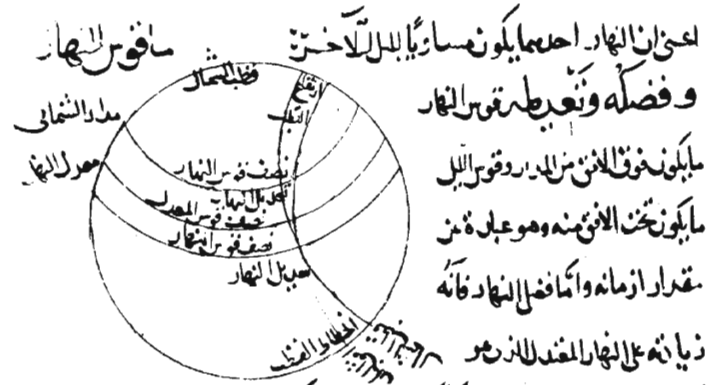 اعنى ان النهار احدهما يكون مساويًا لليل الآخر
ما قوس النهار
وفضله وتعديله قوس النهار
ما يكون فوق الافق من المدار وقوس الليل
ما يكون تحت الافق منه وهو عبارة عن
مقدار ازمانه وامّا فضل النهار فانّه
زيادته على النهار المعتدل الذى هو
قطب الشمال
القطب
مدار الشمالى
معدل النهار
نصف قوس النهار
تعديل النهار
نصف قوس المعدل
نصف قوس النهار
تعديل النهار
انحطاط القطب